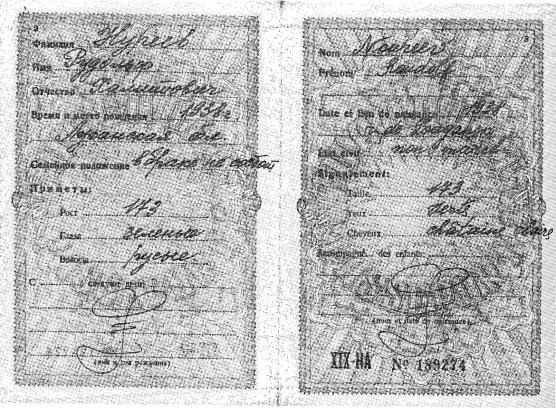 3
Фамилия Нуреев
Имя Рудольф
Отчество Хаметович
Время и место рождения 1938 г
Луганская обл
Семейное положение в браке не состоит
Приметы:
Рост 173
Глаза зеленые
Волосы русые
С следуют дети:
(имя и год рождения)
3
Nom Noureev
Prénom
Date et lieu de naissance 1938
de
Etat civil non marié
Signalement:
Taille 173
Yeux verts
Cheveux chataine claire
Accompagné des enfants:
(nom et date de naissance)
XIX-НА № 189274